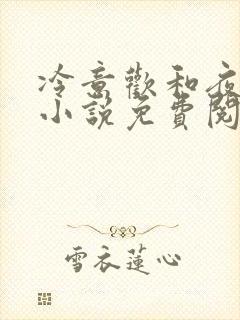 冷意歡和夜
小說免費閱
雪衣蓮心